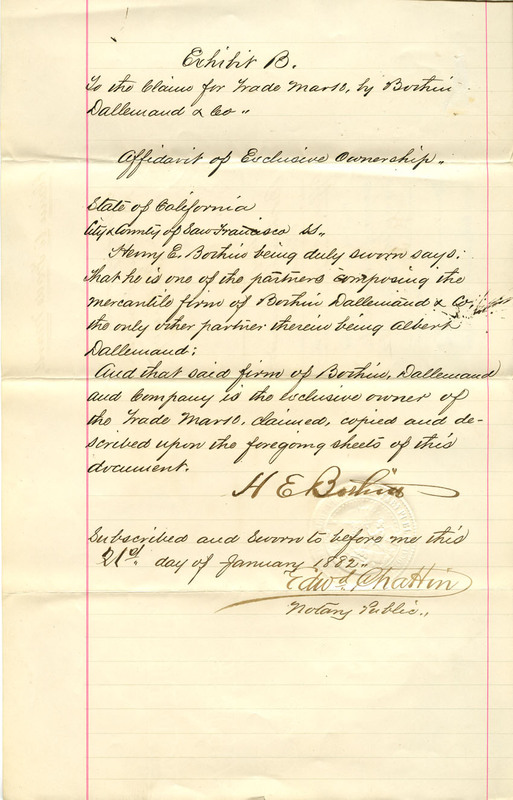 Exhibit B.
To the Claim for Trade Marks, by Bothin
Dallemand & Co.,
Affidavit of Exclusive Ownership.,
State of California
City & County of San Francisco SS.,
Henry E. Bothin being duly sworn says:
That he is one of the partners composing the
mercantile firm of Bothin Dallemand & Co,
the only other partner therein being Albert
Dallemand;
And that said firm of Bothin, Dallemand
and Company is the exclusive owner of
the Trade Marks, claimed, copied and de-
scribed upon the foregoing sheets of this
document.
H E Bothin
Subscribed and Sworn to before me this
21st. day of January 1882.,
Edwd. Chattin
Notary Public.,